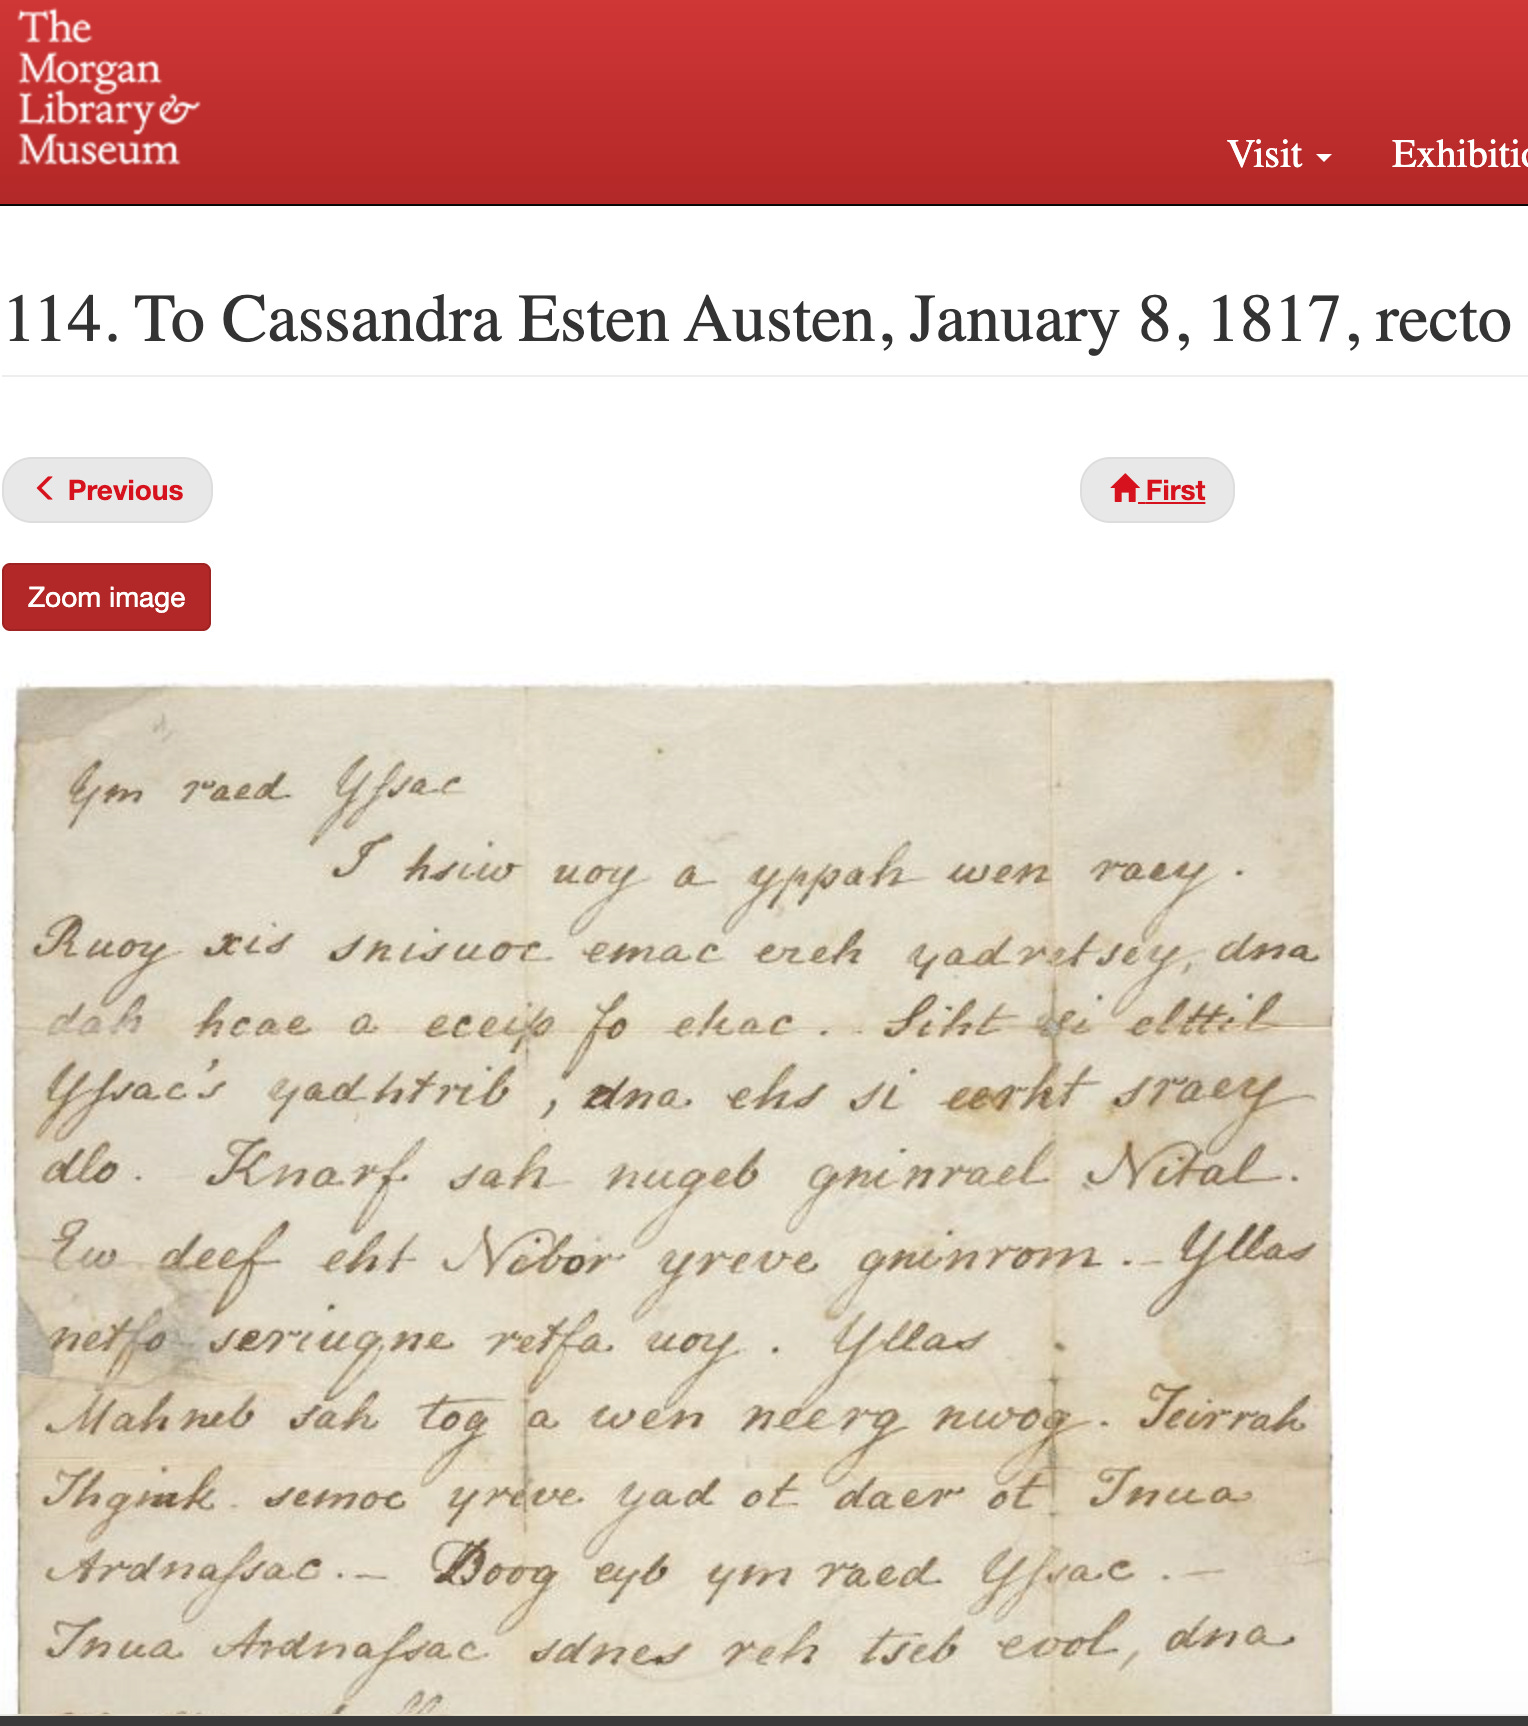 The
Morgan
Library &
Museum
Visit
Exhibitio
114. To Cassandra Esten Austen, January 8, 1817, recto
Previous
First
Zoom image
Ym raed Yſsac
I hsiw uoy a yppah wen raey.
Ruoy xis snisuoc emac ereh yadretsey, dna
dah hcae a eceip fo ekac. - Siht si elttil
Yſsac's yadhtrib, dna ehs si eerht sraey
dlo. Knarf sah nugeb gninrael Nital.
Ew deef eht Nibor yreve gninrom. - Yllas
netfo seriuqne retfa uoy. Yllas
Mahneb sah tog a wen neerg nwog. Teirrah
Thgink semoc yreve yad ot daer ot Tnua
Ardnaſsac. - Doog eyb ym raed Yſsac. -
Tnua Ardnaſsac sdnes reh tseb evol, dna